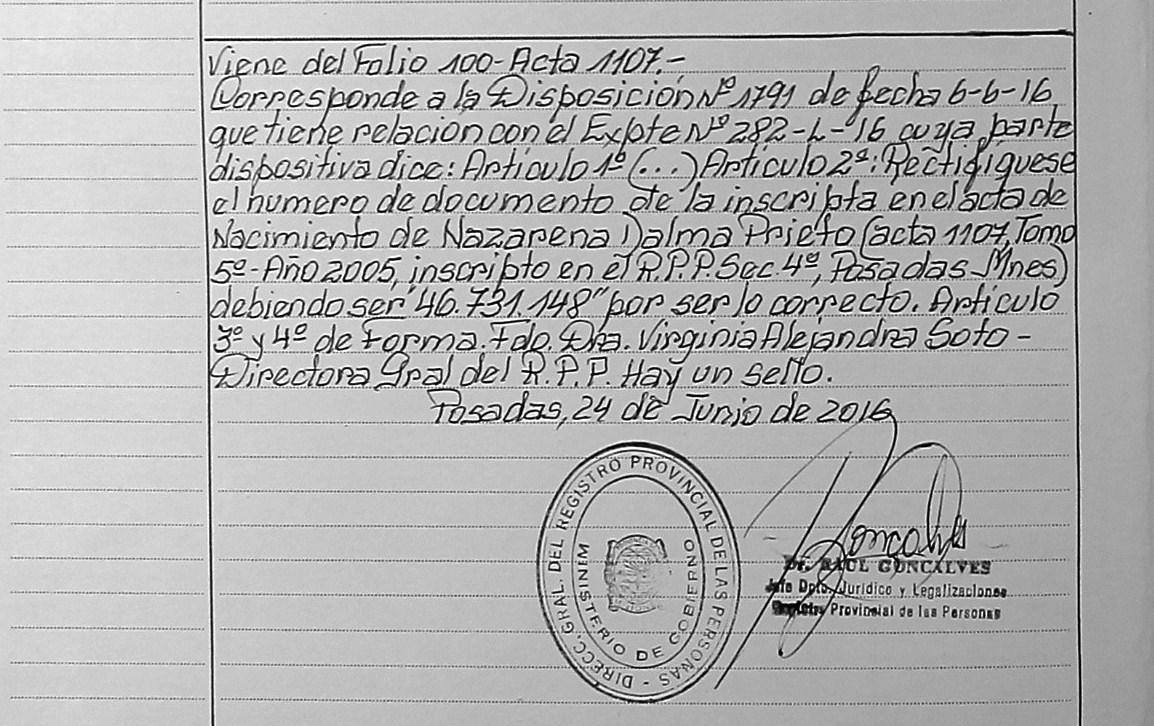 Viene del Folio 100-Acta 1107.-
Corresponde a la Disposición Nº 1791 de fecha 6-6-16,
que tiene relación con el Expte Nº 282-L-16 cuya parte
dispositiva dice: Artículo 1º (...) Artículo 2º: Rectifíquese
el número de documento de la inscripta en el acta de
Nacimiento de Nazarena Dalma Prieto (acta 1107, Tomo
5º-Año 2005, inscripto en el R.P.P. Sec. 4º, Posadas-Mnes)
debiendo ser "46.731.148" por ser lo correcto. Artículo
3º y 4º de Forma. Fdo. Dra. Virginia Alejandra Soto-
Directora Gral del R.P.P. Hay un sello.
Posadas, 24 de Junio de 2016
DIRECC. GRAL. DEL REGISTRO PROVINCIAL DE LAS PERSONAS -
MINISTERIO DE GOBIERNO
Goncalves
Dr. RAUL GONCALVES
Jefe Dpto. Jurídico y Legalizaciones
Registro Provincial de las Personas